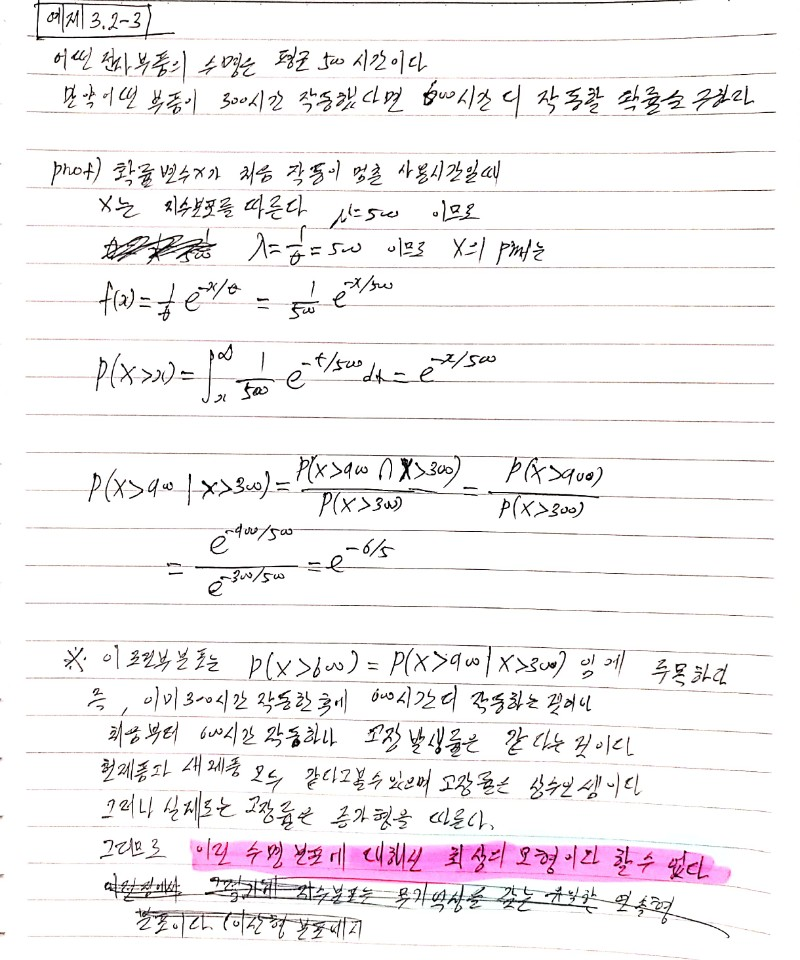 예제 3.2-3
어떤 전자부품의 수명은 평균 500시간이다
만약 어떤 부품이 300시간 작동했다면 600시간 더 작동할 확률을 구하라
proof) 확률변수 X가 처음 작동이 멈춘 사용시간일때
X는 지수분포를 따른다 μ=500 이므로
λ=1/θ=500 이므로 X의 pdf는
f(x)=1/θ e^{-x/θ} = 1/500 e^{-x/500}
P(X>x)=∫_x^∞ 1/500 e^{-t/500} dt = e^{-x/500}
P(X>900 | X>300) = P(X>900 ∩ X>300)/P(X>300) = P(X>900)/P(X>300)
= e^{-900/500}/e^{-300/500} = e^{-6/5}
※. 이 조건부분포는 P(X>600) = P(X>900 | X>300) 임에 주목하라
즉, 이미 300시간 작동한 후에 600시간 더 작동하는 것이나
처음부터 600시간 작동하나 고장 발생률은 같다는 것이다
헌제품과 새제품 모두 같다고볼수있으며 고장률은 상수인 셈이다
그러나 실제로는 고장률은 증가형을 따른다.
그러므로 이런 수명분포에 대해선 최상의 모형이라 할 수 없다
지수분포는 무기억성을 갖는 유일한 연속형
분포이다. (이산형 분포에서